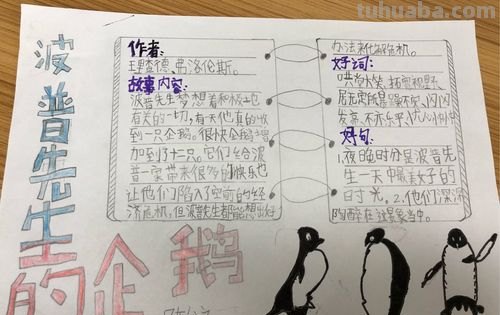 tuhuaba.com
波普先生的企鹅
作者：
理查德、弗洛伦斯。
故事内容：
波普先生梦想着和极地
有关的一切，有天他真的收
到一只企鹅。很快企鹅增
加到了十二只。它们给波
普一家带来很多的快乐也
让他们陷入了空前的经
济危机，但波普先生都能想出好
办法来化解危机。
好词：
哄堂大笑、
发亮、不亦乐乎、
好句：
1.夜晚时分是波普先
生一天中最美好的
时光。2.他们深深
陶醉在这景象当中。